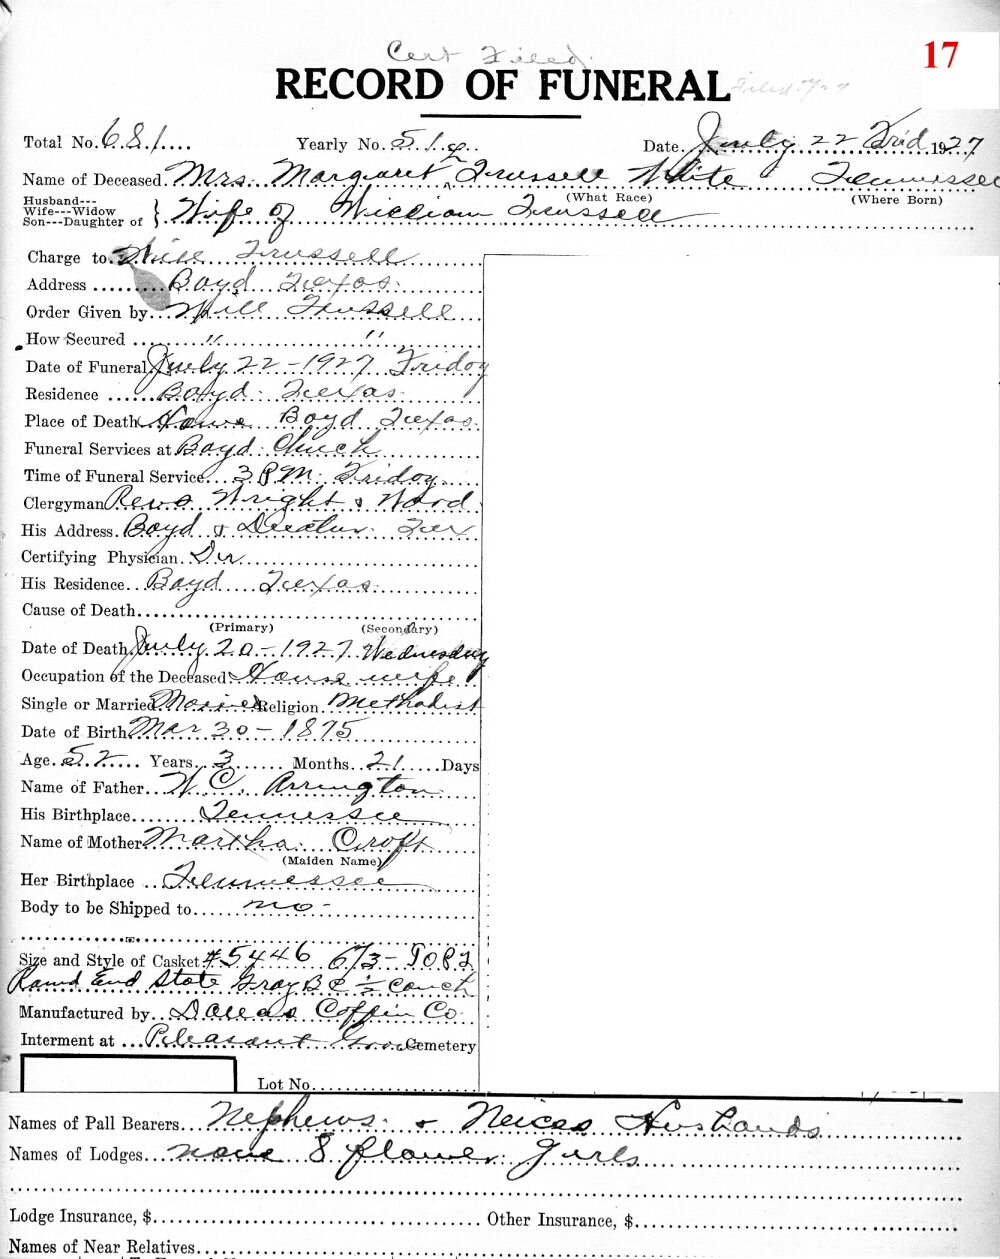 17
Cert Filed.
RECORD OF FUNERAL
Filed
Total No. 681 Yearly No. 51 Date. July 22 Frid 1927
Name of Deceased. Mrs. Margaret Trussell White Tennessee
(What Race) (Where Born)
Husband---
Wife---Widow
Son---Daughter of } Wife of William Trussell
Charge to Will Trussell
Address Boyd Texas.
Order Given by Will Trussell
How Secured " "
Date of Funeral July 22 - 1927 Friday
Residence Boyd Texas.
Place of Death Home Boyd Texas.
Funeral Services at Boyd Chuch
Time of Funeral Service 3 PM. Friday
Clergyman Revs Wright & Wood
His Address. Boyd & Decatur. Tex
Certifying Physician. Dr
His Residence Boyd Texas.
Cause of Death
(Primary) (Secondary)
Date of Death July 20 - 1927 Wednesday
Occupation of the Deceased House wife
Single or Married Married Religion. Methodist
Date of Birth Mar 30 - 1875
Age. 52 Years. 3 Months. 21 Days
Name of Father W C. Arrington
His Birthplace Tennessee
Name of Mother Martha Croft
(Maiden Name)
Her Birthplace Tennessee
Body to be Shipped to no -
Size and Style of Casket #5446 6/3 -
End State Gray B C ½ Couch
Manufactured by Dallas Coffin Co.
Interment at Pleasant Grove Cemetery
Lot No.
Names of Pall Bearers Nephews. & Neices Husbands
Names of Lodges none 8 flower girls
Lodge Insurance, $ Other Insurance, $
Names of Near Relatives